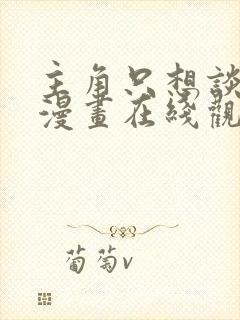 主角只想談
漫畫在綫觀
葡萄v